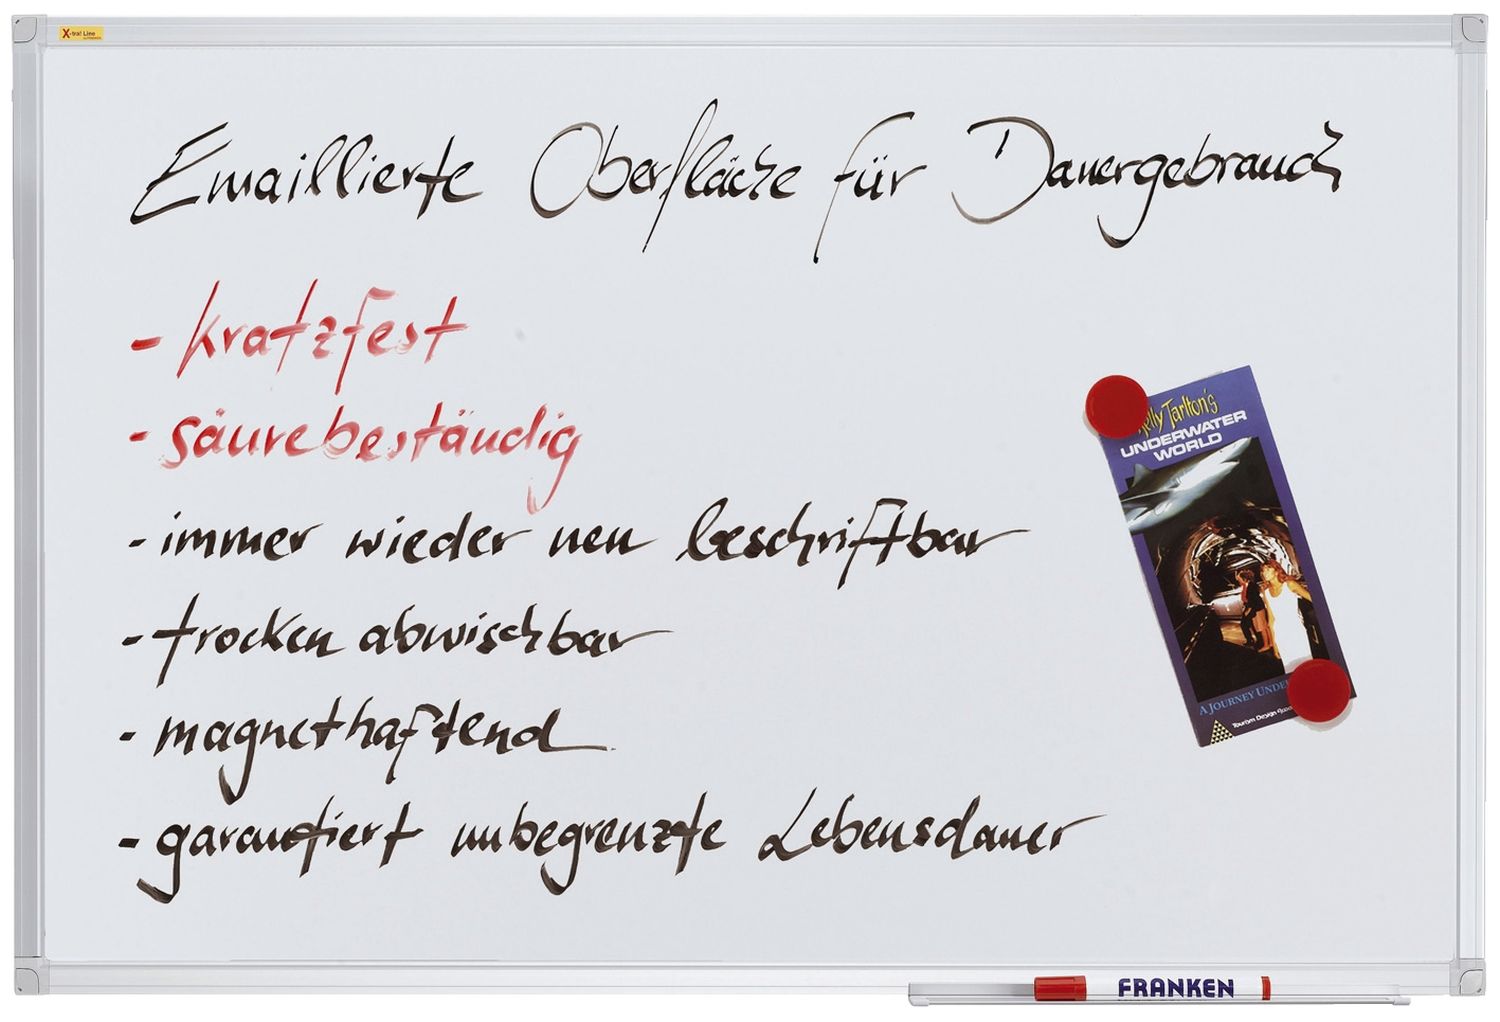 X-tra! Line
Emaillierte Oberfläche für Dauergebrauch
- kratzfest
- säurebeständig
- immer wieder neu beschriftbar
- trocken abwischbar
- magnethaftend
- garantiert unbegrenzte Lebensdauer
elly Tarlton's
UNDERWATER
WORLD
A JOURNEY UNDE
Tourism Design
FRANKEN